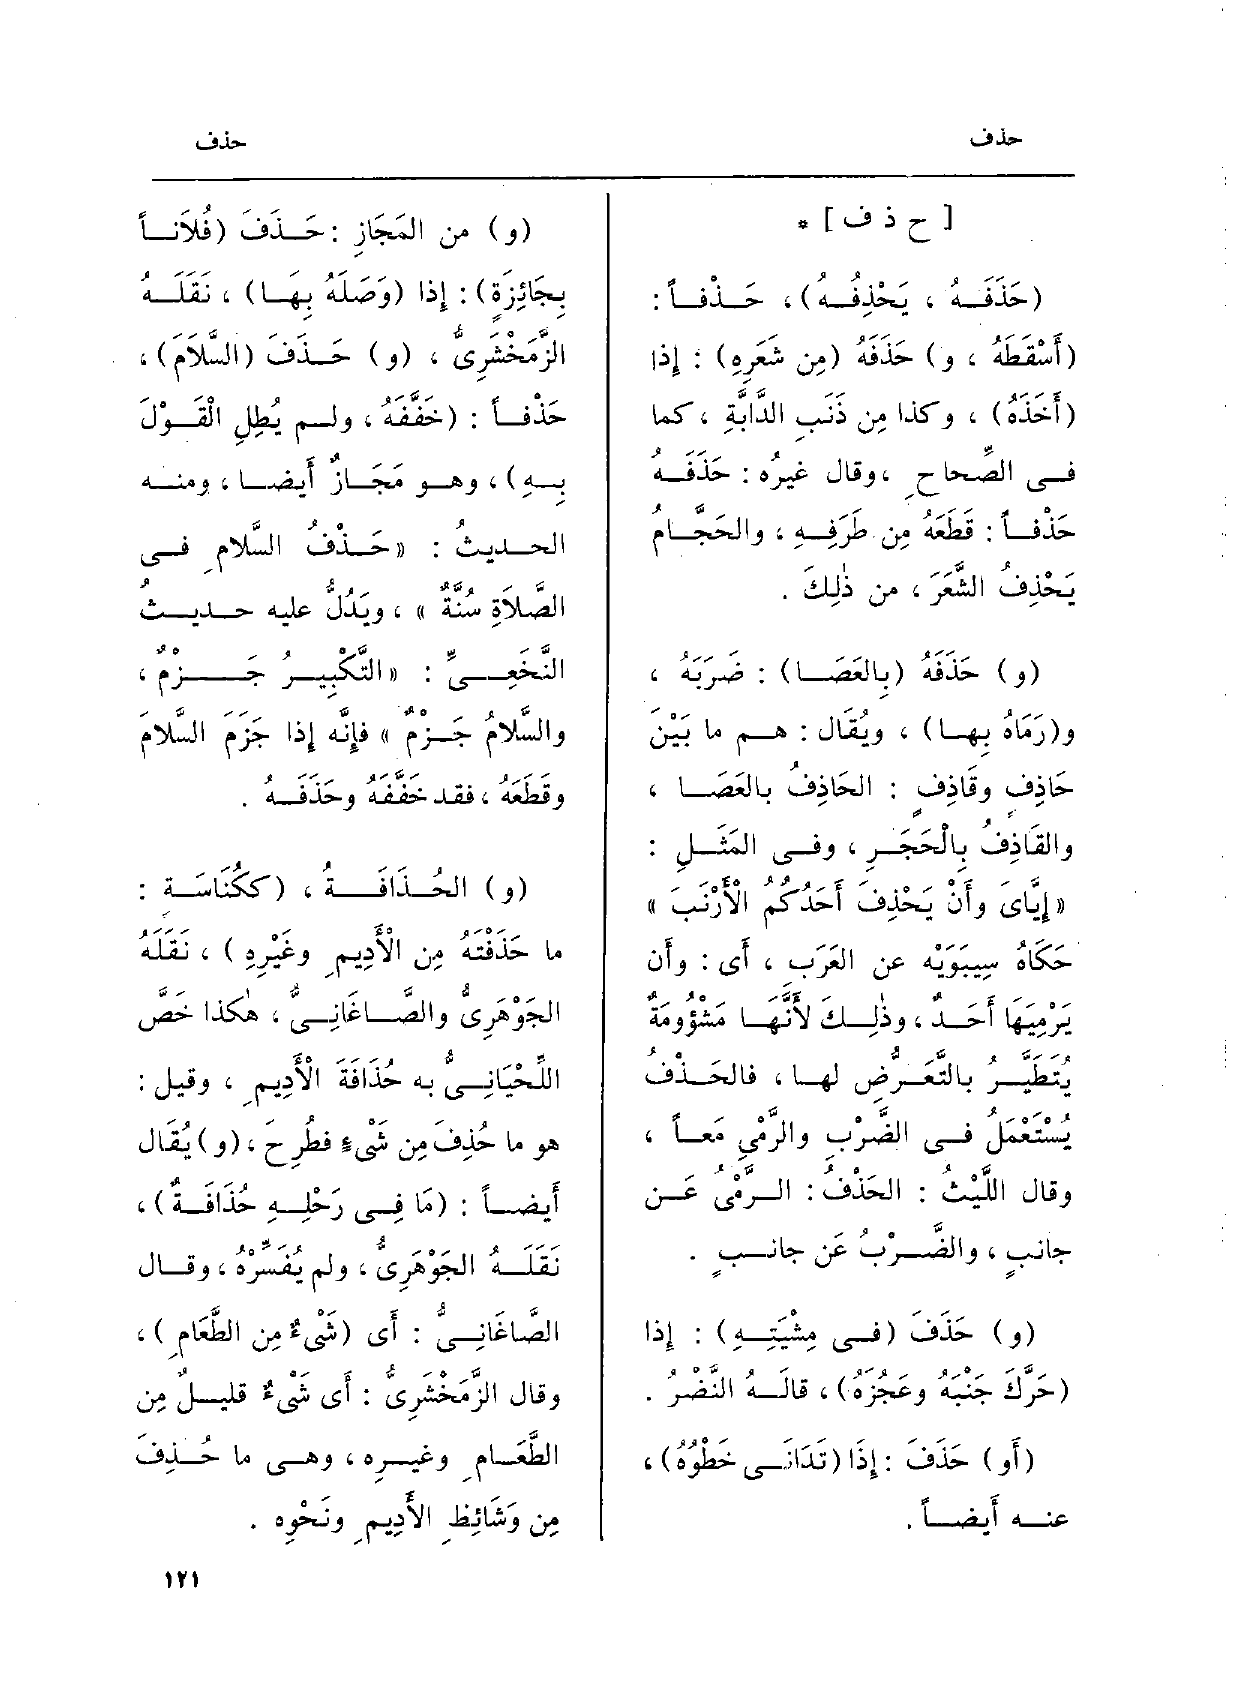 حذف
حذف
[ ح ذ ف ] *
(حَذَفَـهُ ، يَحْذِفُـهُ) ، حَـذْفـاً :
(أَسْقَطَهُ ، و) حَذَفَهُ (مِن شَعَرِه) : إذا
(أَخَذَهُ) ، وكذا مِن ذَنَبِ الدَّابَّةِ ، كما
فـى الصِّحاحِ ، وقال غيرُه : حَذَفَـهُ
حَذْفـاً : قَطَعَهُ مِن طَرَفِهِ ، والحَجَّامُ
يَحْذِفُ الشَّعَرَ ، من ذٰلِكَ .
(و) حَذَفَهُ (بِالعَصَـا) : ضَرَبَهُ ،
و(رَمَاهُ بِهـا) ، ويُقَال : هـم ما بَيْنَ
حَاذِفٍ وقَاذِفٍ : الحَاذِفُ بالعَصَـا ،
والقَاذِفُ بِالْحَجَـرِ ، وفـى المَثَـلِ :
« إِيَّاىَ وأَنْ يَحْذِفَ أَحَدُكُمُ الْأَرْنَبَ »
حَكَاهُ سِيبَوَيْه عن العَرَبِ ، أى : وأن
يَرْمِيَهَا أَحَـدٌ ، وذٰلِـكَ لأَنَّهَـا مَشْؤُومَةٌ
يُتَطَيَّـرُ بالتَّعَـرُّضِ لهـا ، فالحَـذْفُ
يُسْتَعْمَلُ فـى الضَّرْبِ والرَّمْىِ مَعـاً ،
وقال اللَّيْثُ : الحَذْفُ : الـرَّمْىُ عَـن
جانبٍ ، والضَّـرْبُ عَن جانـبٍ .
(و) حَذَفَ (فـى مِشْيَتِـهِ) : إذا
(حَرَّكَ جَنْبَهُ وعَجُزَهُ) ، قالَـهُ النَّضْرُ .
(أَو) حَذَفَ : إِذَا (تَدَانَـى خَطْوُهُ) ،
عنـه أَيضـاً .
(و) من المَجَازِ : حَـذَفَ (فُلَانـاً
بِجَائِزَةٍ) : إذا (وَصَلَهُ بِهَـا) ، نَقَلَـهُ
الزَّمَخْشَرِىُّ ، (و) حَـذَفَ (السَّلَامَ) ،
حَذْفـاً : (خَفَّفَهُ ، ولـم يُطِلِ الْقَـوْلَ
بِـهِ) ، وهـو مَجَـازٌ أَيضـا ، ومنـه
الحـديثُ : « حَـذْفُ السَّلامِ فـى
الصَّلَاةِ سُنَّةٌ » ، ويَدُلُّ عليه حـديـثُ
النَّخَعِـىِّ : « التَّكْبِيـرُ جَـزْمٌ ،
والسَّلامُ جَـزْمٌ » فإنَّه إذا جَزَمَ السَّلامَ
وقَطَعَهُ ، فقد خَفَّفَهُ وحَذَفَـهُ .
(و) الحُـذَافَـةُ ، (ككُنَاسَـةٍ :
ما حَذَفْتَهُ مِن الْأَدِيـمِ وغَيْرِهِ ) ، نَقَلَهُ
الجَوْهَرِىُّ والصَّـاغَانِـىُّ ، هٰكذا خَصَّ
اللِّحْيَانِـىُّ به حُذَافَةَ الأَدِيمِ ، وقيل :
هو ما حُذِفَ مِن شَىْءٍ فطُرِحَ ، (و) يُقَال
أَيضـاً : (مَا فِـى رَحْلِـهِ حُذَافَـةٌ) ،
نَقَلَـهُ الجَوْهَرِىُّ ، ولم يُفَسِّرْهُ ، وقـال
الصَّاغَانِـىُّ : أَى (شَىْءٌ مِن الطَّعَامِ ) ،
وقال الزَّمَخْشَرِىُّ : أَى شَىْءٌ قليـلٌ مِن
الطَّعَـامِ وغيـرِه ، وهـى ما حُـذِفَ
مِن وَشَائِظِ الأَدِيمِ ونَحْوِه .
١٢١